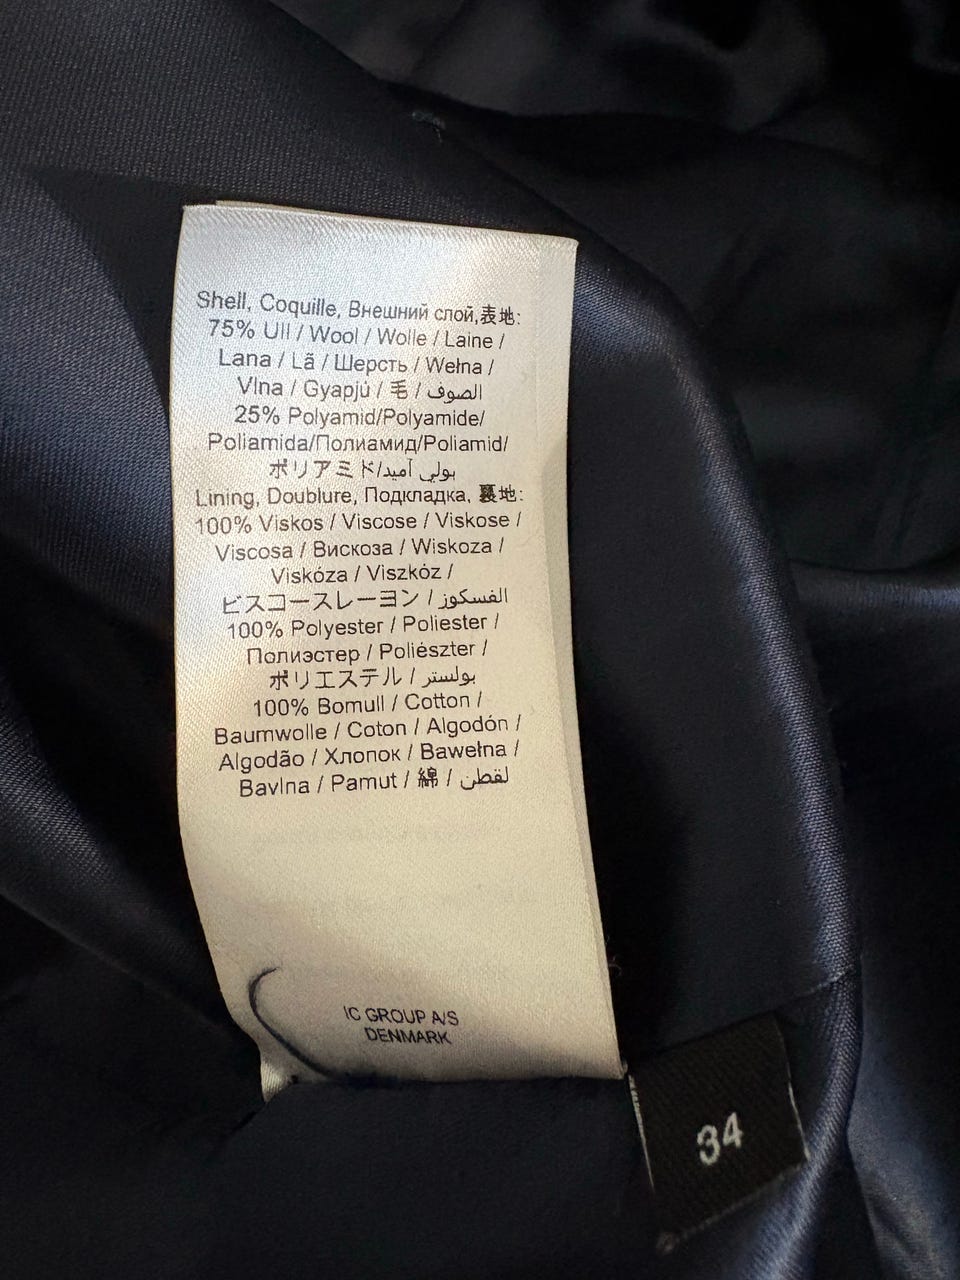 Shell, Coquille, Внешний слой,表地:
75% Ull / Wool / Wolle / Laine /
Lana / Lã / Шерсть / Wełna /
Vlna / Gyapjú / 毛 / الصوف
25% Polyamid/Polyamide/
Poliamida/Полиамид/Poliamid/
ポリアミド/بولي آميد
Lining, Doublure, Подкладка, 裏地:
100% Viskos / Viscose / Viskose /
Viscosa / Вискоза / Wiskoza /
Viskóza / Viszkóz /
ビスコースレーヨン / الفسكوز
100% Polyester / Poliester /
Полиэстер / Poliészter /
ポリエステル / بولستر
100% Bomull / Cotton /
Baumwolle / Coton / Algodón /
Algodão / Хлопок / Bawełna /
Bavlna / Pamut / 綿 / لقطن
IC GROUP A/S
DENMARK
34